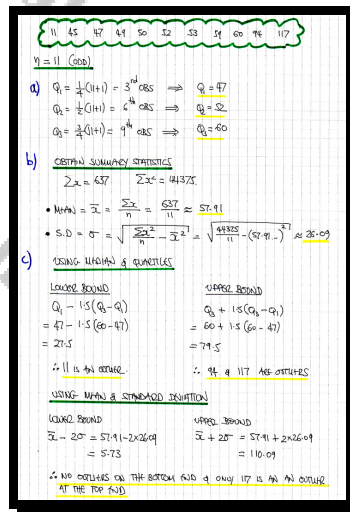 11 45 47 49 50 52 53 59 60 94 117
n = 11 (ODD)
a) Q₁ = 1/4(11+1) = 3rd OBS ⟹ Q₁ = 47
Q₂ = 1/2(11+1) = 6th OBS ⟹ Q₂ = 52
Q₃ = 3/4(11+1) = 9th OBS ⟹ Q₃ = 60
b) OBTAIN SUMMARY STATISTICS
Σx = 637 Σx² = 44375
• MEAN = x̄ = Σx/n = 637/11 ≈ 57.91
• S.D = σ = √(Σx²/n - x̄²) = √(44375/11 - (57.91..)²) ≈ 26.09
c) USING MEDIAN & QUARTILES
LOWER BOUND
Q₁ - 1.5(Q₃-Q₁)
= 47 - 1.5(60-47)
= 27.5
∴ 11 IS AN OUTLIER
UPPER BOUND
Q₃ + 1.5(Q₃-Q₁)
= 60 + 1.5(60-47)
= 79.5
∴ 94 & 117 ARE OUTLIERS
USING MEAN & STANDARD DEVIATION
LOWER BOUND
x̄ - 2σ = 57.91 - 2×26.09
= 5.73
UPPER BOUND
x̄ + 2σ = 57.91 + 2×26.09
= 110.09
∴ NO OUTLIERS ON THE BOTTOM END & ONLY 117 IS AN AN OUTLIER
AT THE TOP END